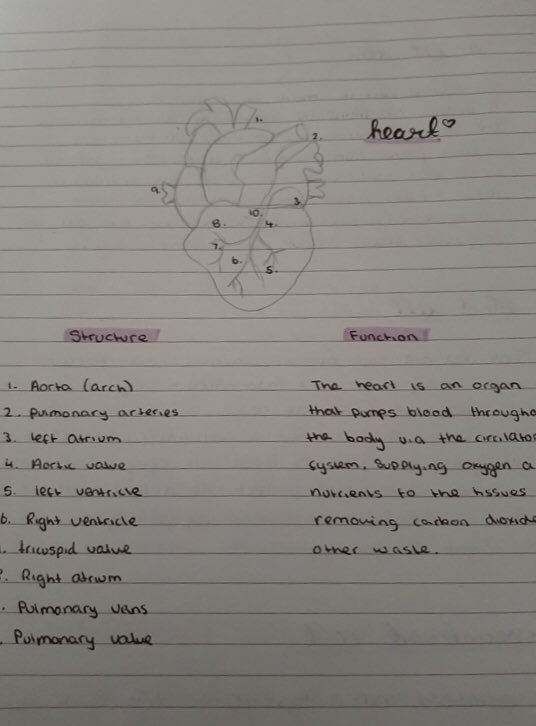 heart
1.
2.
9.
3.
10.
8.
4.
7.
6.
5.
Structure
Function
1. Aorta (arch)
The heart is an organ
2. pulmonary arteries
that pumps blood througho
3. left atrium
the body via the circulator
4. Aortic valve
system, supplying oxygen a
5. left ventricle
nutrients to the tissues
6. Right ventricle
removing carbon dioxide
. tricuspid valve
other waste.
. Right atrium
. Pulmonary veins
. Pulmonary valve